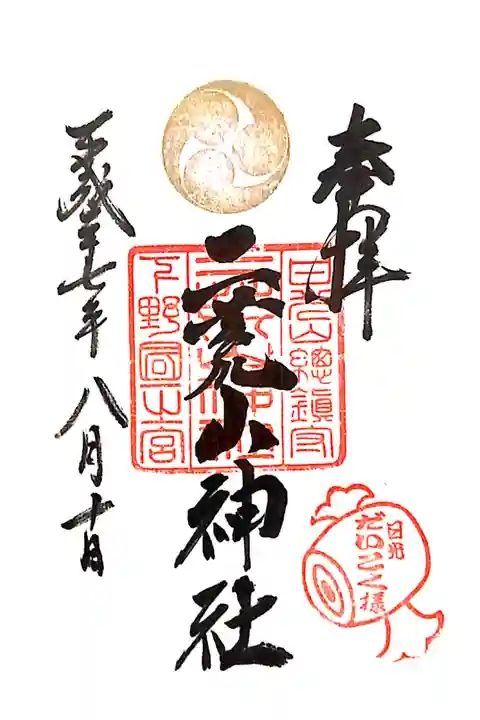 奉拝
日光山總鎮守
二荒山神社
下野國一宮
平成二十七年八月十日
日光
だいこく様